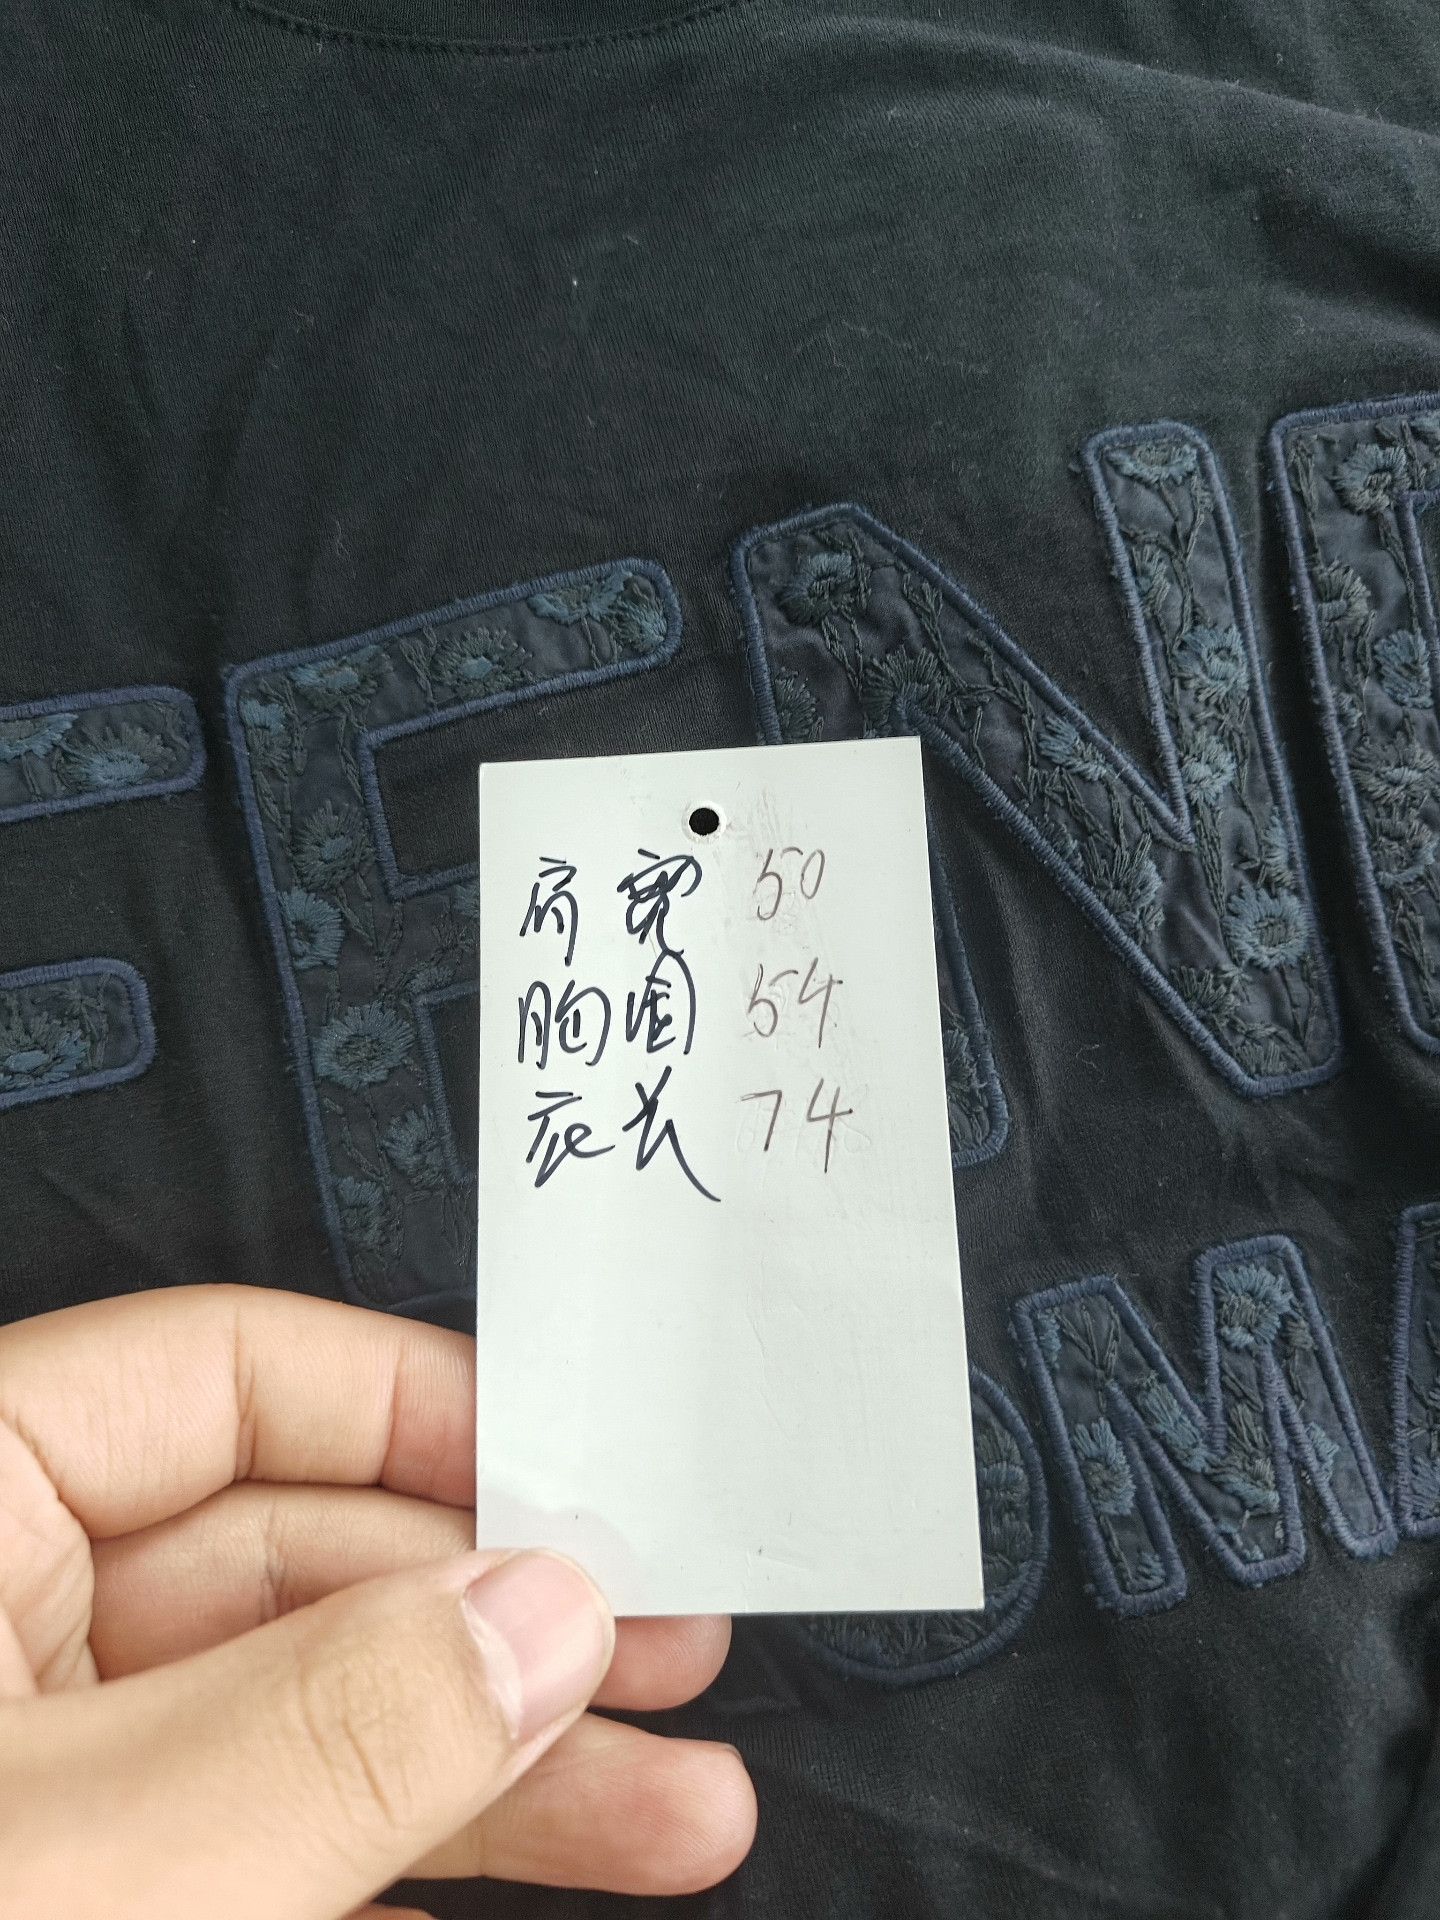 FEND
OMA
肩宽 50
胸围 54
衣长 74